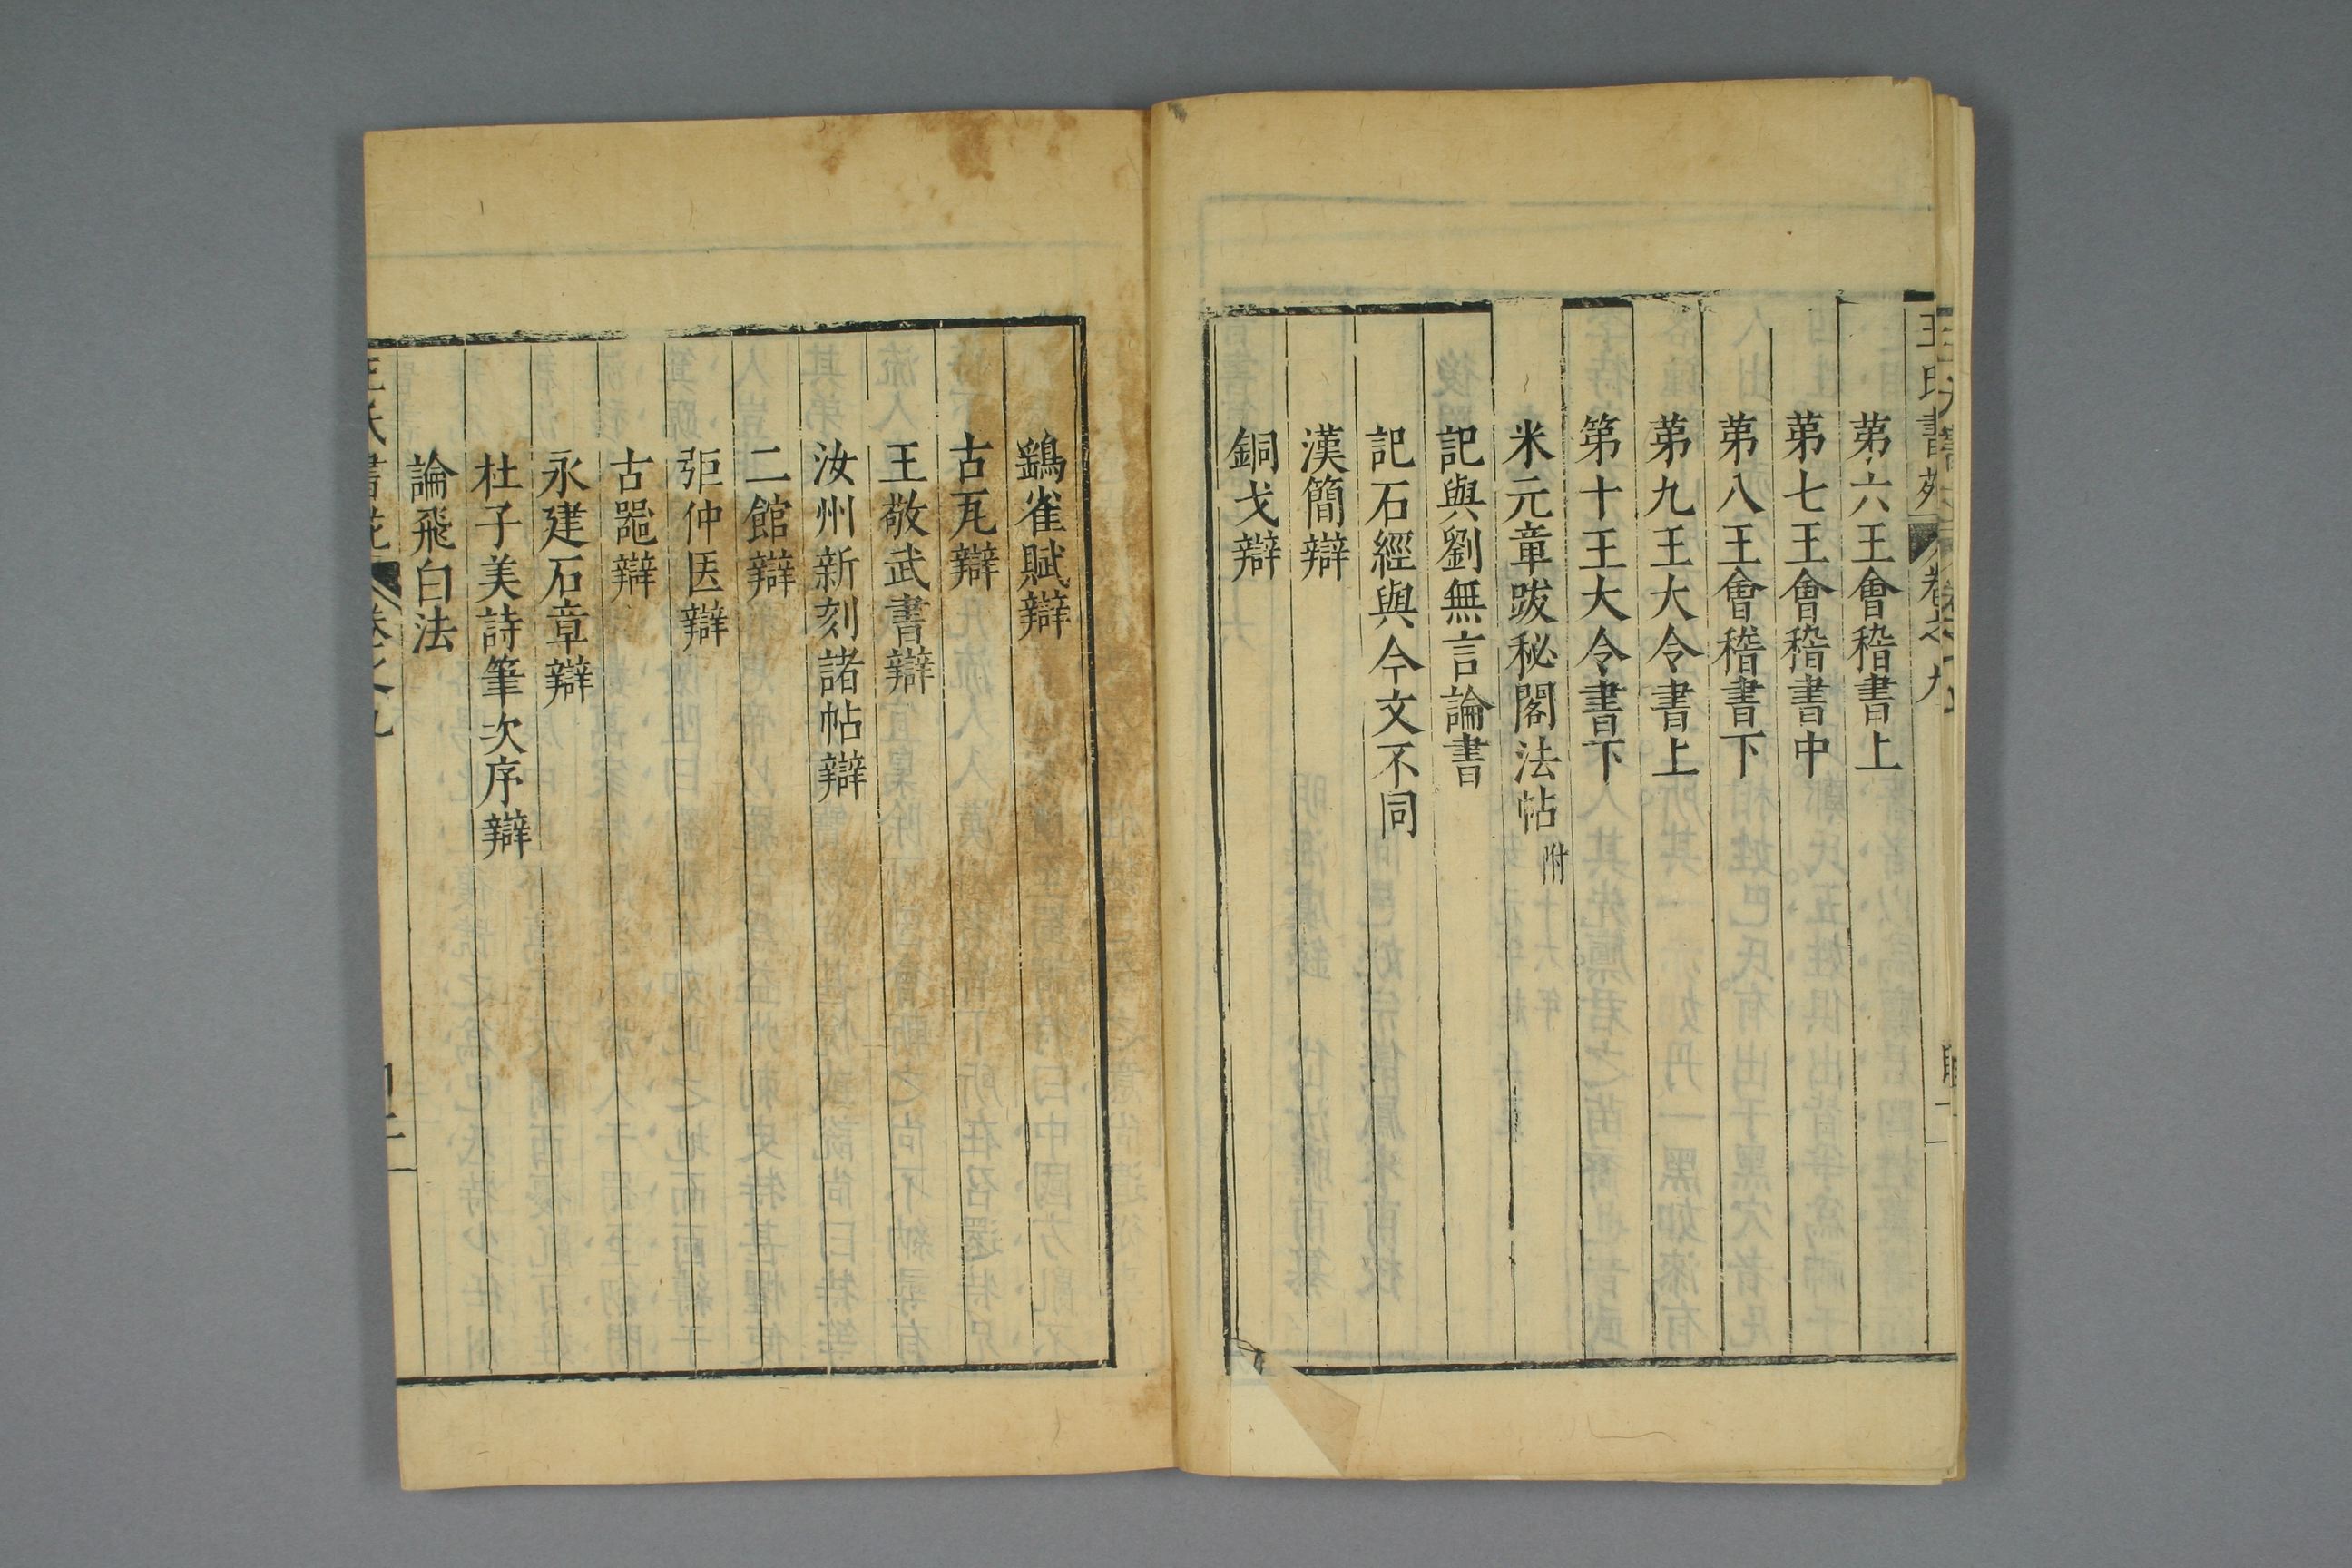 王氏書苑 卷之九
苐六王會稽書上
苐七王會稽書中
苐八王會稽書下
苐九王大令書上
第十王大令書下
米元章跋秘閣法帖附
記與劉無言論書
記石經與今文不同
漢簡辯
銅戈辯
鷂雀賦辯
古瓦辯
王敬武書辯
汝州新刻諸帖辯
二館辯
弡仲医辯
古噐辯
永建石章辯
杜子美詩筆次序辯
論飛白法
王氏書苑 卷之九